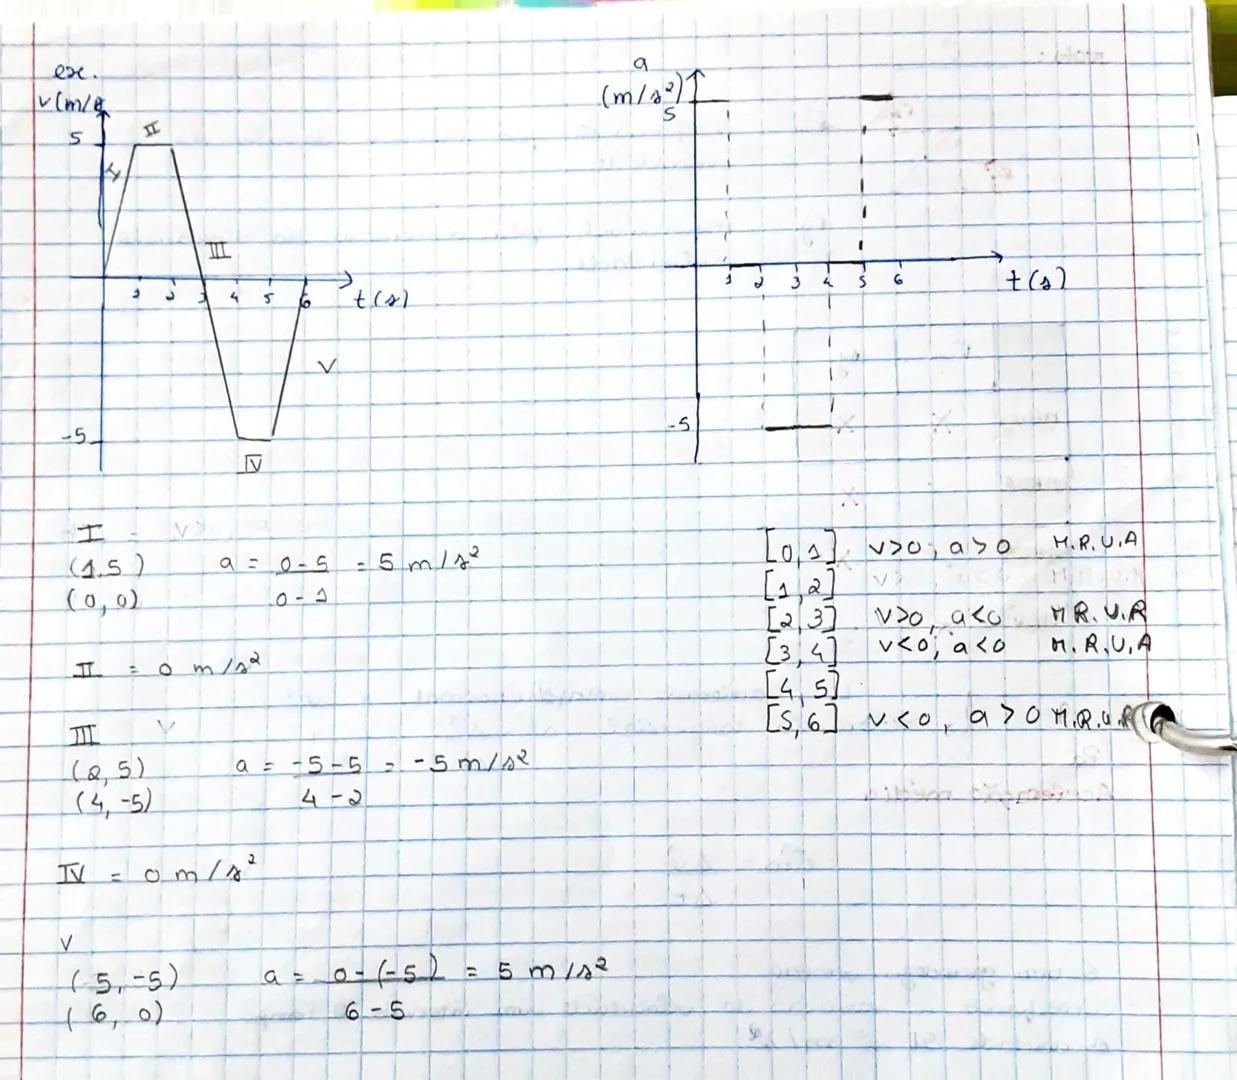 ex.
v (m/s
5
I
II
III
1 2 3 4 5 6 t (s)
V
-5
IV
a
(m/s²)
5
1 2 3 4 5 6 t (s)
-5
I
(1.5) a = 0-5 = 5 m/s²
(0,0) 0-1
II = 0 m/s²
III
(2,5) a = -5-5 = -5 m/s²
(4,-5) 4-2
IV = 0 m/s²
V
(5,-5) a = 0-(-5) = 5 m/s²
(6,0) 6-5
[0,1] v>0, a>0 M.R.U.A
[1,2]
[2,3] v>0, a<0 M R.U.R
[3,4] v<0, a<0 M.R.U.A
[4,5]
[5,6] v<0, a>0 M.R.U.R